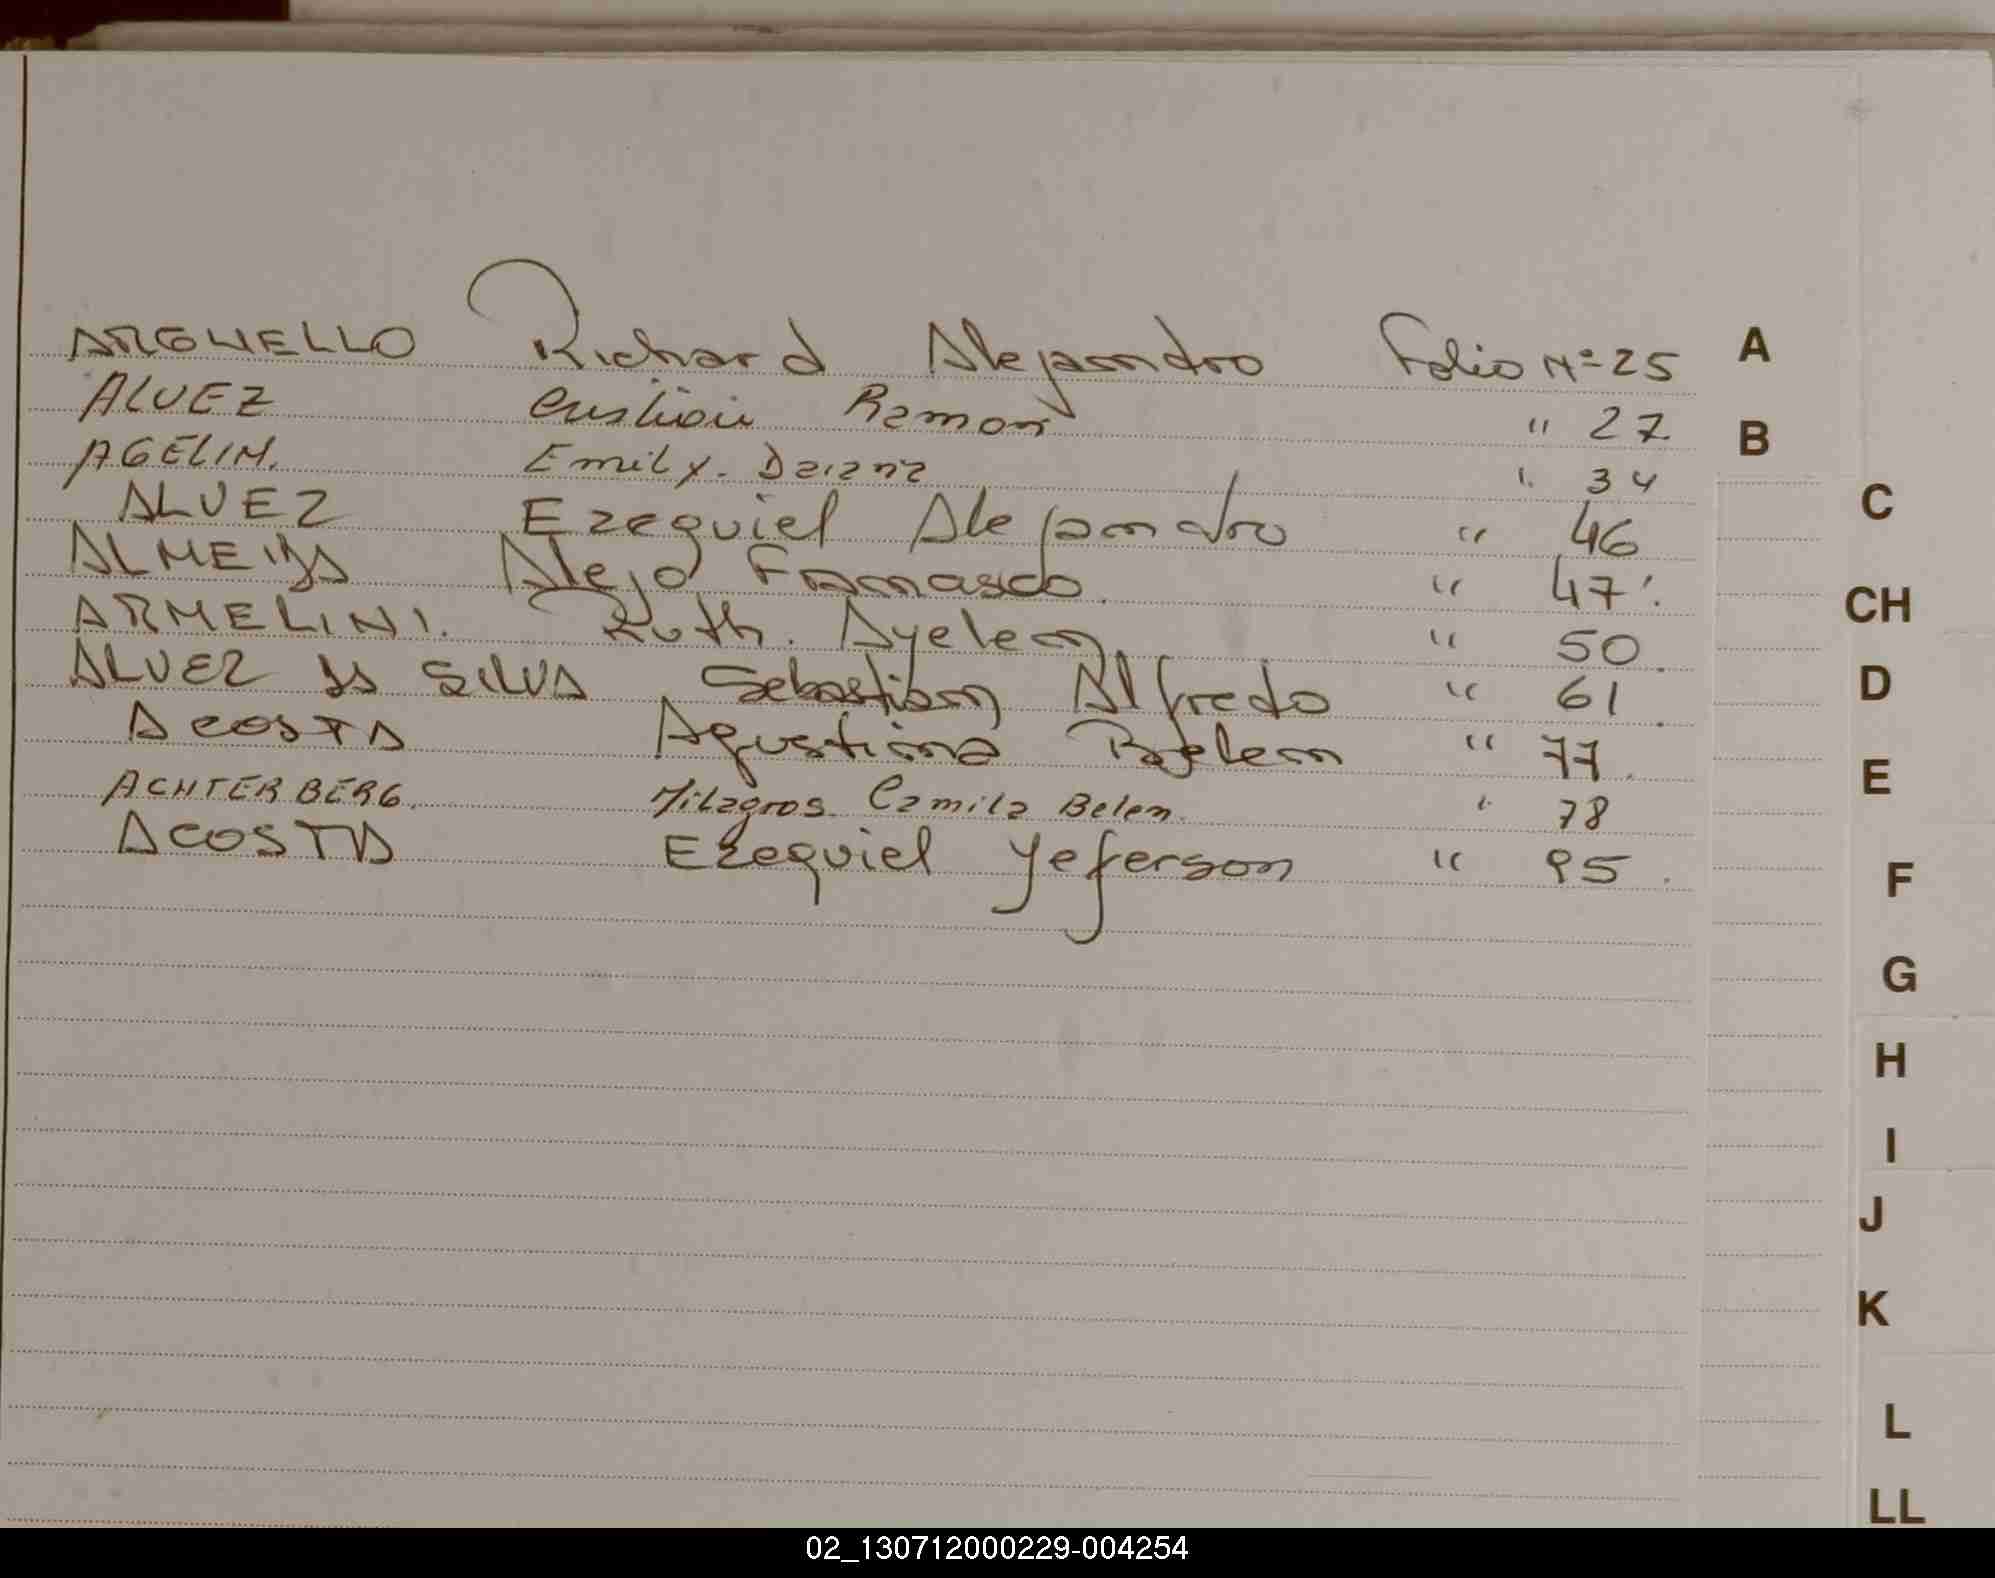 ARGUELLO Richard Alejandro Folio Nº 25 A
ALVEZ Cristian Ramon " 27 B
AGELIN. Emily. Daiana " 34
ALVEZ Ezequiel Alejandro " 46 C
ALMEIDA Alejo " 47
ARMELINI. Ruth. Ayelen " 50. CH
ALVEZ DA SILVA Sebastian Alfredo " 61. D
ACOSTA Agustina Belem " 77.
ACHTERBERG. Milagros Camila Belen. " 78 E
ACOSTA Ezequiel Yeferson " 95. F
G
H
I
J
K
L
LL
02_130712000229-004254